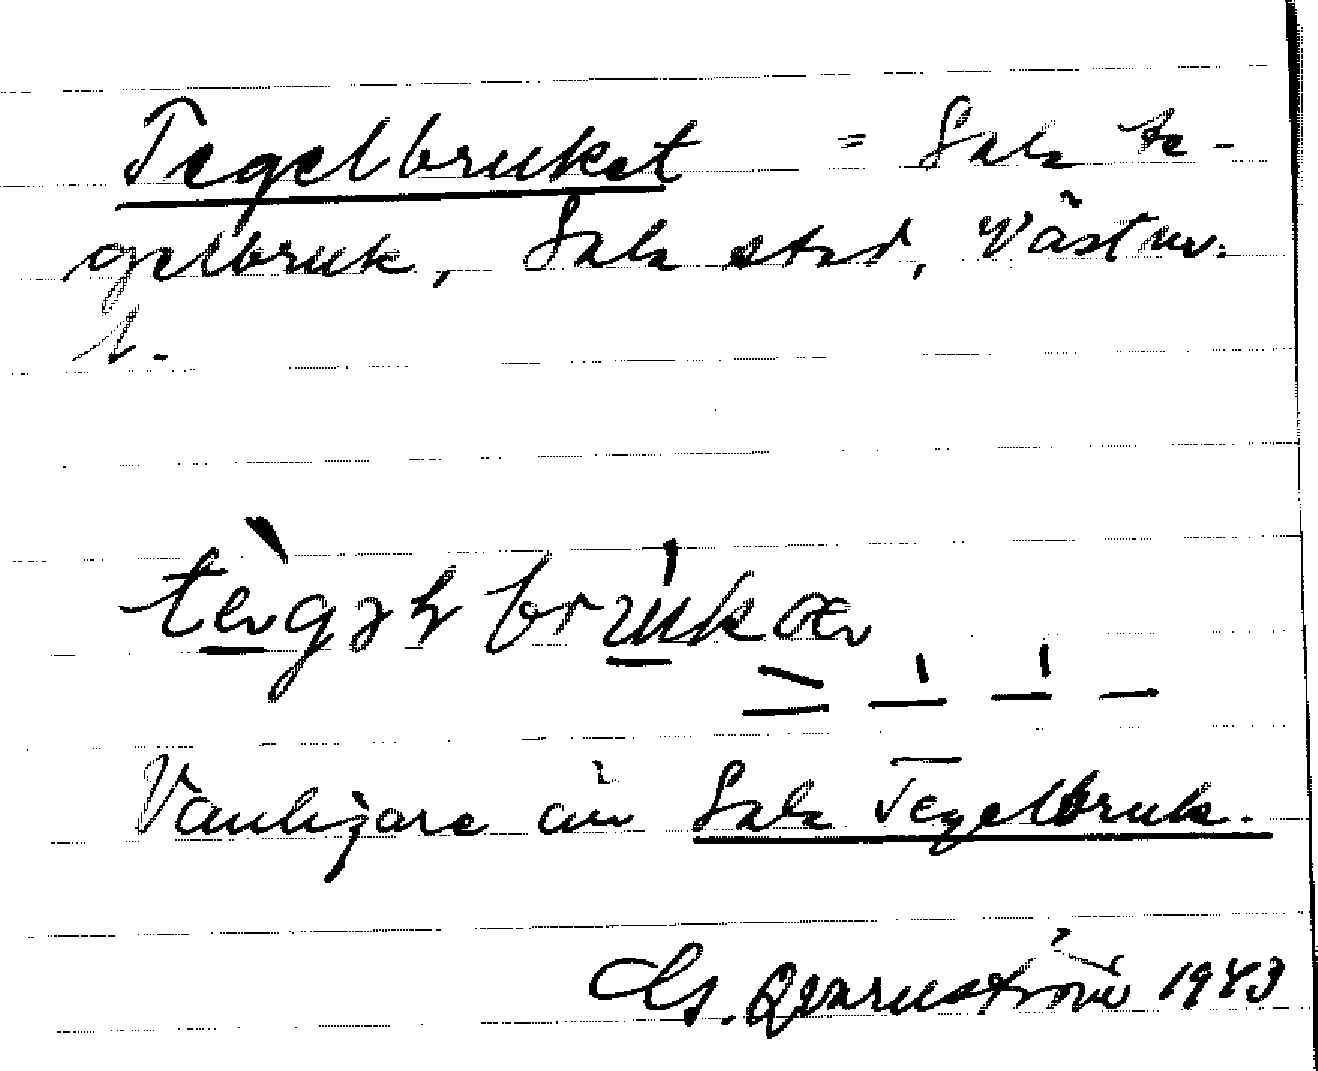 Tegelbruket = Sala te-
gelbruk, Sala stad, Västm.
l.
Vanligare än Sala Tegelbruk.
Qvarnström 1943